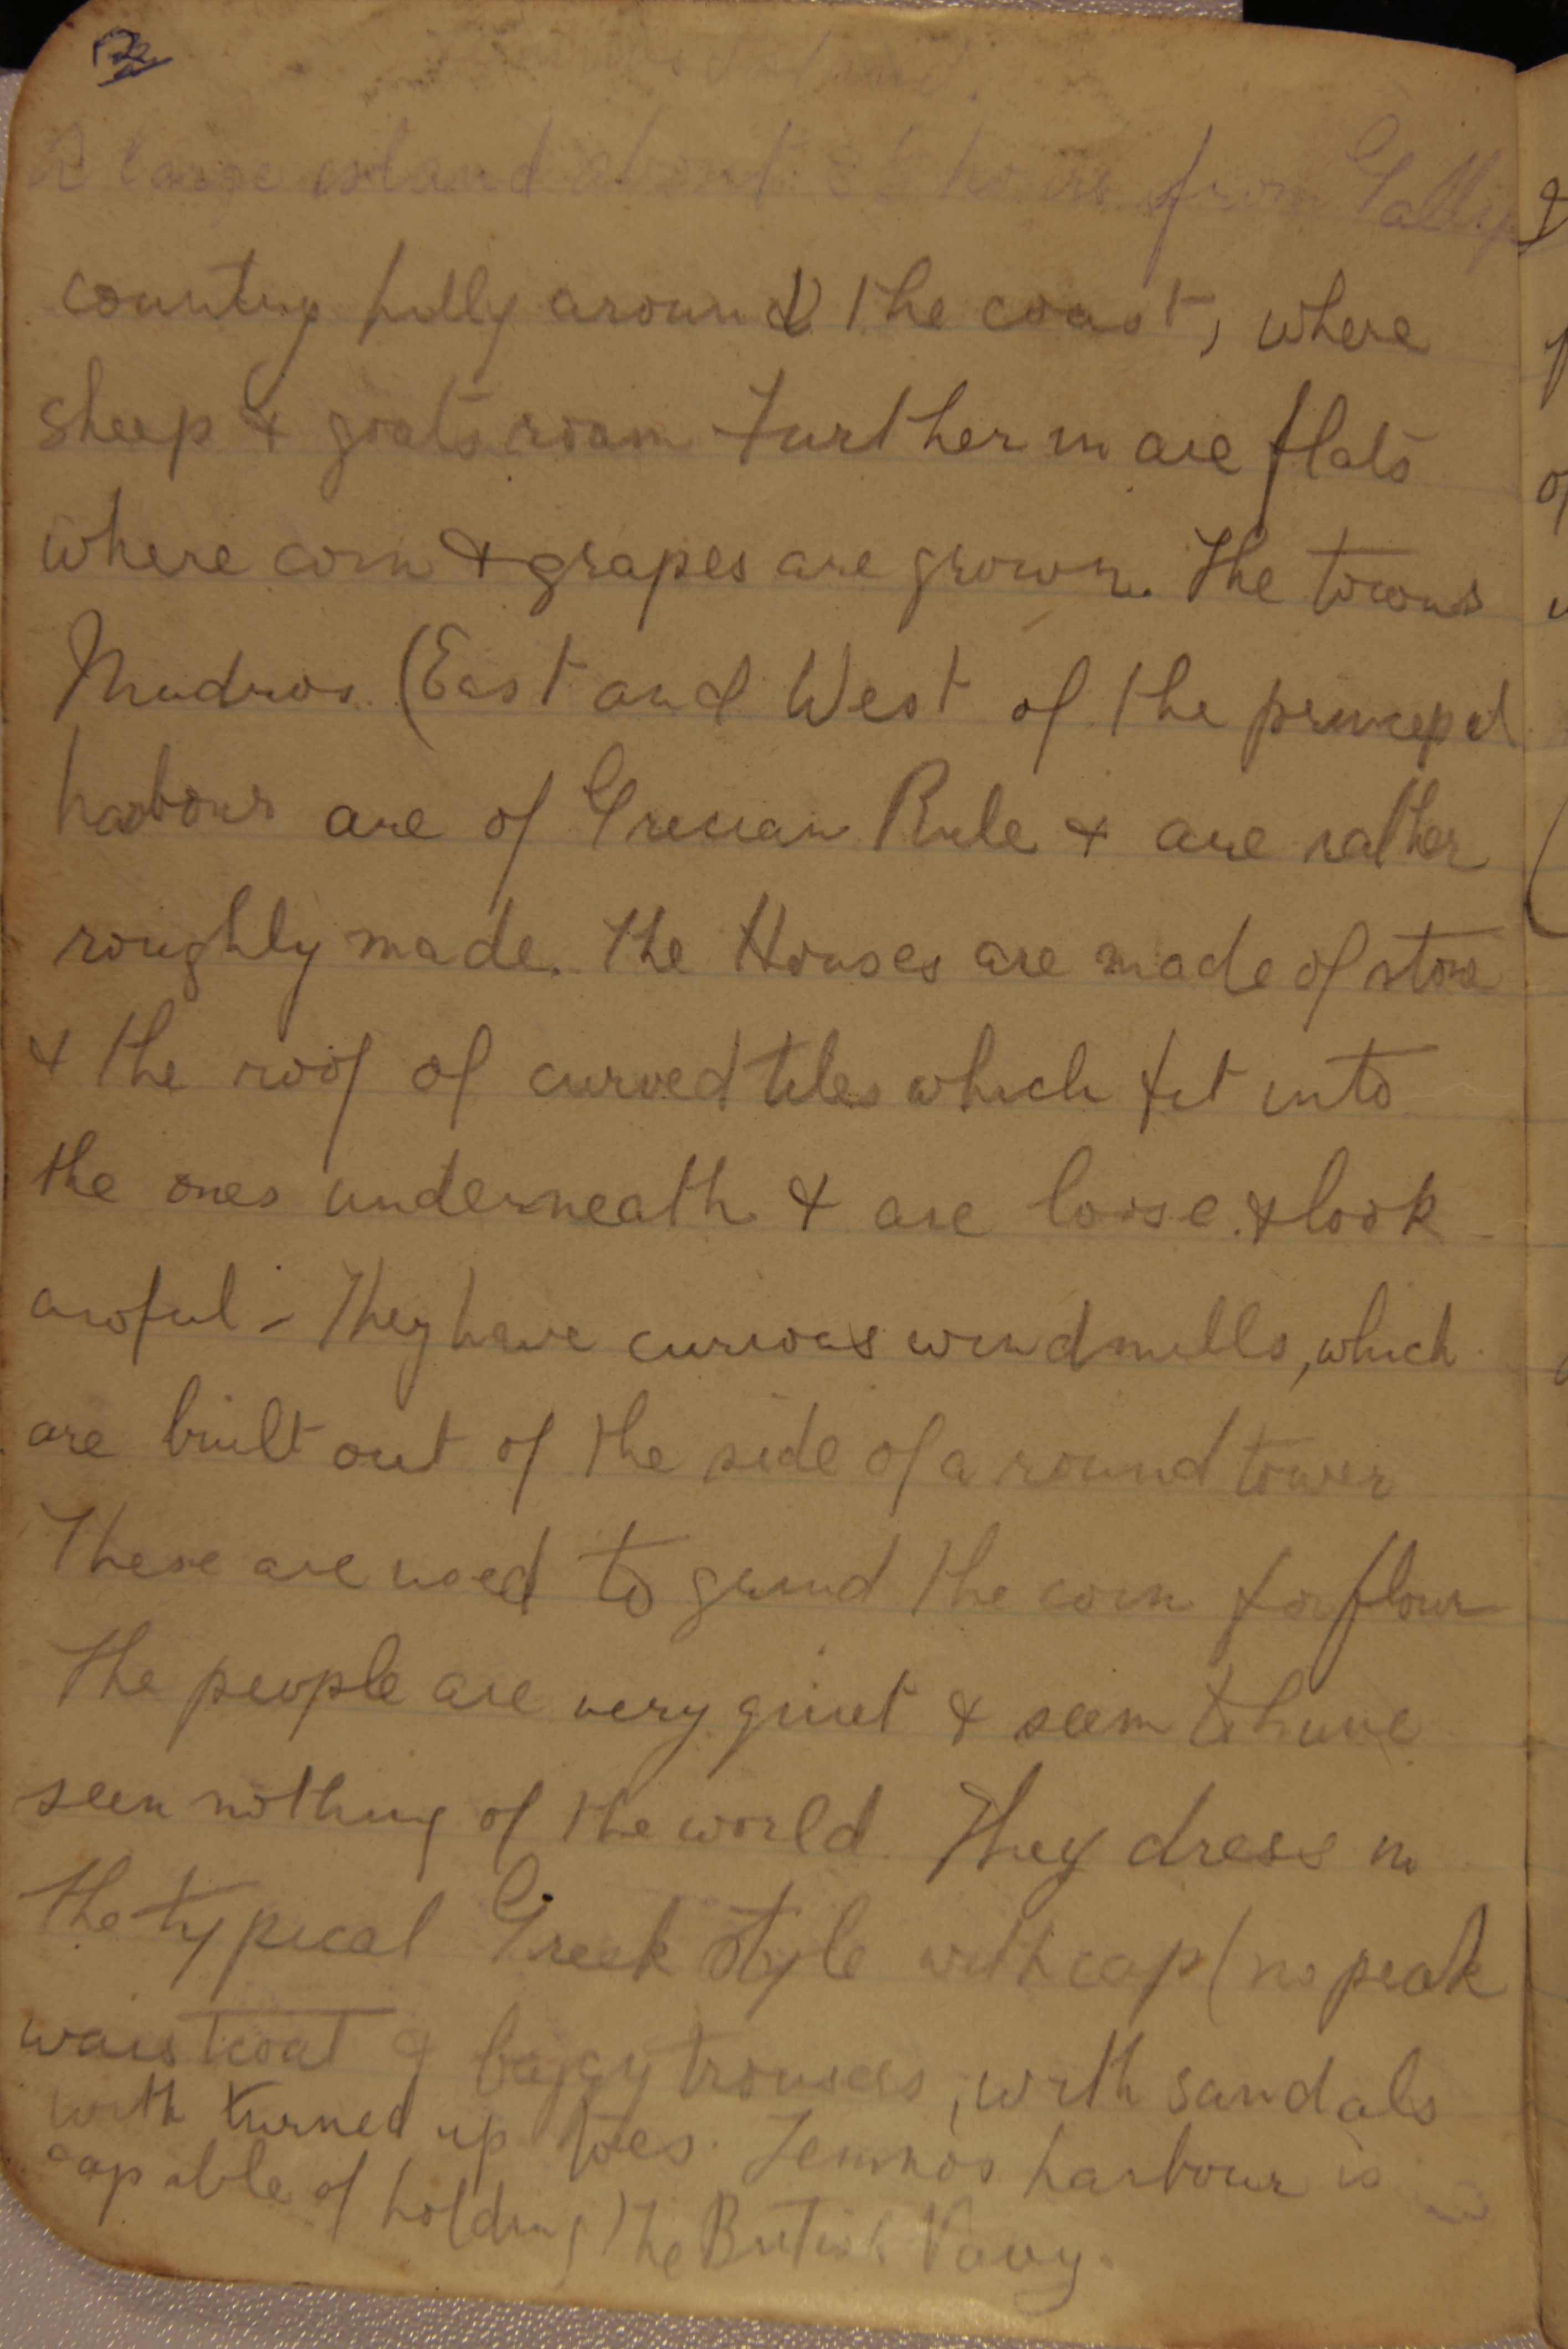 Island
A large island about hours from Gallip
country hilly around the coast, where
sheep & goats roam Further in are flats
where corn & grapes are grown. The towns
Mudros (East and West of the principal
harbour are of Grecian Rule & are rather
roughly made. The Houses are made of stone
& the roof of curved tiles which fit into
the ones underneath & are loose & look
awful - They have curious windmills, which
are built out of the side of a round tower
These are used to grind the corn for flour
The people are very quiet & seem to have
seen nothing of the world They dress in
the typical Greek style with cap (no peak
waistcoat & baggy trousers, with sandals
with turned up toes. Lemnos harbour is
capable of holding the British Navy.